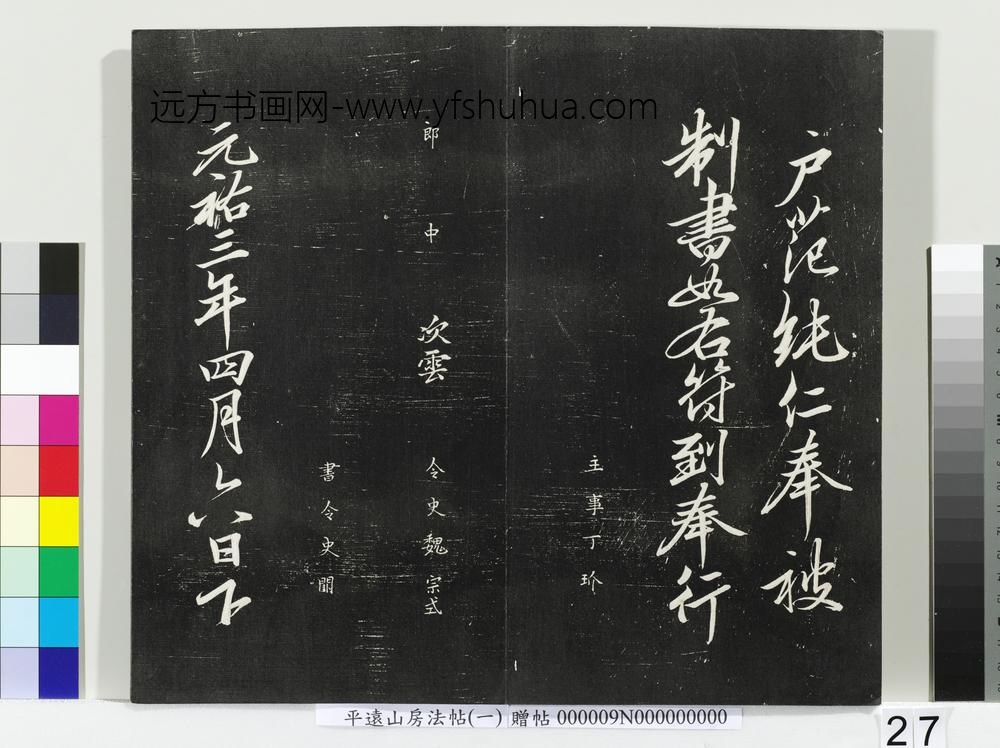 户范纯仁奉被
制書如右符到奉行
主事丁玠
郎中 次雲 令史魏宗式
書令史
元祐三年四月六日下
远方书画网-www.yfshuhua.com
平遠山房法帖(一) 贈帖 000009N000000000
27